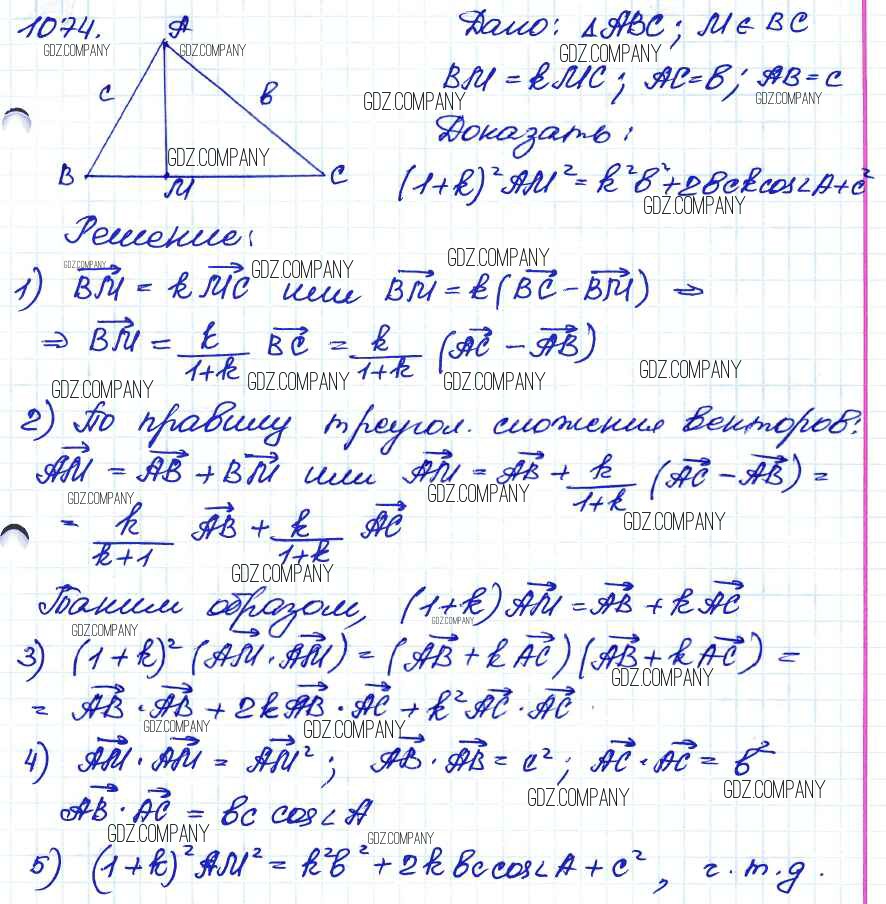 1074.
Дано: △ABC; M ∈ BC
BM = kMC; AC = b; AB = c
Доказать:
(1+k)²AM² = k²b² + 2bck cos∠A + c²
A
c
b
B
M
C
Решение:
1) BM⃗ = k MC⃗ или BM⃗ = k(BC⃗ − BM⃗) ⇒
⇒ BM⃗ = k/(1+k) BC⃗ = k/(1+k) (AC⃗ − AB⃗)
2) По правилу треугол. сложения векторов:
AM⃗ = AB⃗ + BM⃗ или AM⃗ = AB⃗ + k/(1+k) (AC⃗ − AB⃗) =
= k/(k+1) AB⃗ + k/(1+k) AC⃗
Таким образом, (1+k)AM⃗ = AB⃗ + kAC⃗
3) (1+k)² (AM⃗ · AM⃗) = (AB⃗ + kAC⃗)(AB⃗ + kAC⃗) =
= AB⃗ · AB⃗ + 2kAB⃗ · AC⃗ + k²AC⃗ · AC⃗
4) AM⃗ · AM⃗ = AM⃗²; AB⃗ · AB⃗ = c²; AC⃗ · AC⃗ = b²
AB⃗ · AC⃗ = bc cos∠A
5) (1+k)²AM² = k²b² + 2kbc cos∠A + c², ч.т.д.
GDZ.COMPANY